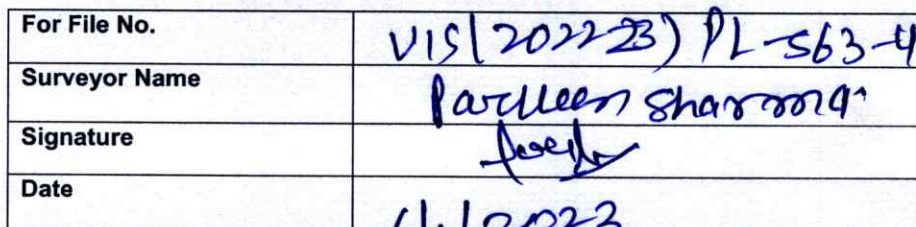 For File No. VIS(2022-23) PL-563-4
Surveyor Name Parveen Sharma
Signature
Date 2023